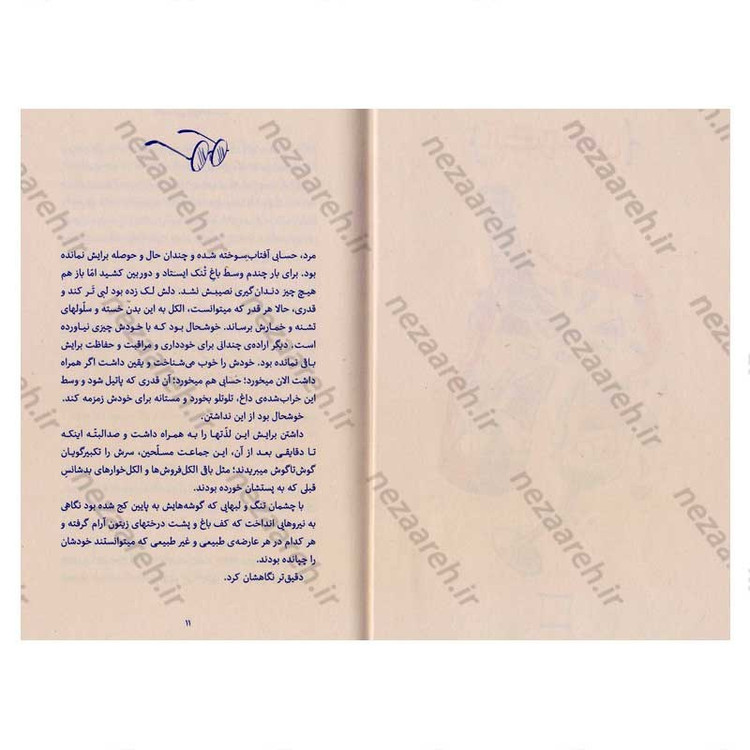 مرد، حسابی آفتاب‌سوخته شده و چندان حال و حوصله برایش نمانده
بود. برای بار چندم وسطِ باغِ تُنک ایستاد و دوربین کشید امّا باز هم
هیچ چیز دندان‌گیری نصیبش نشد. دلش لک زده بود لبی تَر کند و
قدری، حالا هر قدر که میتوانست، الکل به این بدن خسته و سلّولهای
تشنه و خمارش برساند. خوشحال بود که با خودش چیزی نیاورده
است، دیگر اراده‌ی چندانی برای خودداری و مراقبت و حفاظت برایش
باقی نمانده بود. خودش را خوب می‌شناخت و یقین داشت اگر همراه
داشت الان میخورد؛ حسابی هم میخورد؛ آن قدری که پاتیل شود و وسط
این خراب‌شده‌ی داغ، تلوتلو بخورد و مستانه برای خودش زمزمه کند.
خوشحال بود از این نداشتن.
داشتن برایش این لذّتها را به همراه داشت و صدالبتّه اینکه
تا دقایقی بعد از آن، این جماعت مسلّحین، سرش را تکبیرگویان
گوش‌تاگوش میبریدند؛ مثل باقی الکل‌فروش‌ها و الکل‌خوارهای بدشانسِ
قبلی که به پستشان خورده بودند.
با چشمان تنگ و لبهایی که گوشه‌هایش به پایین کج شده بود نگاهی
به نیروهایی انداخت که کف باغ و پشت درختهای زیتون آرام گرفته و
هر کدام در هر عارضه‌ی طبیعی و غیر طبیعی که میتوانستند خودشان
را چپانده بودند.
دقیق‌تر نگاهشان کرد.
۱۱
nezaareh.ir
nezaareh.ir
nezaareh.ir
nezaareh.ir
nezaareh.ir
nezaareh.ir
nezaareh.ir
nezaareh.ir
nezaareh.ir
nezaareh.ir
nezaareh.ir